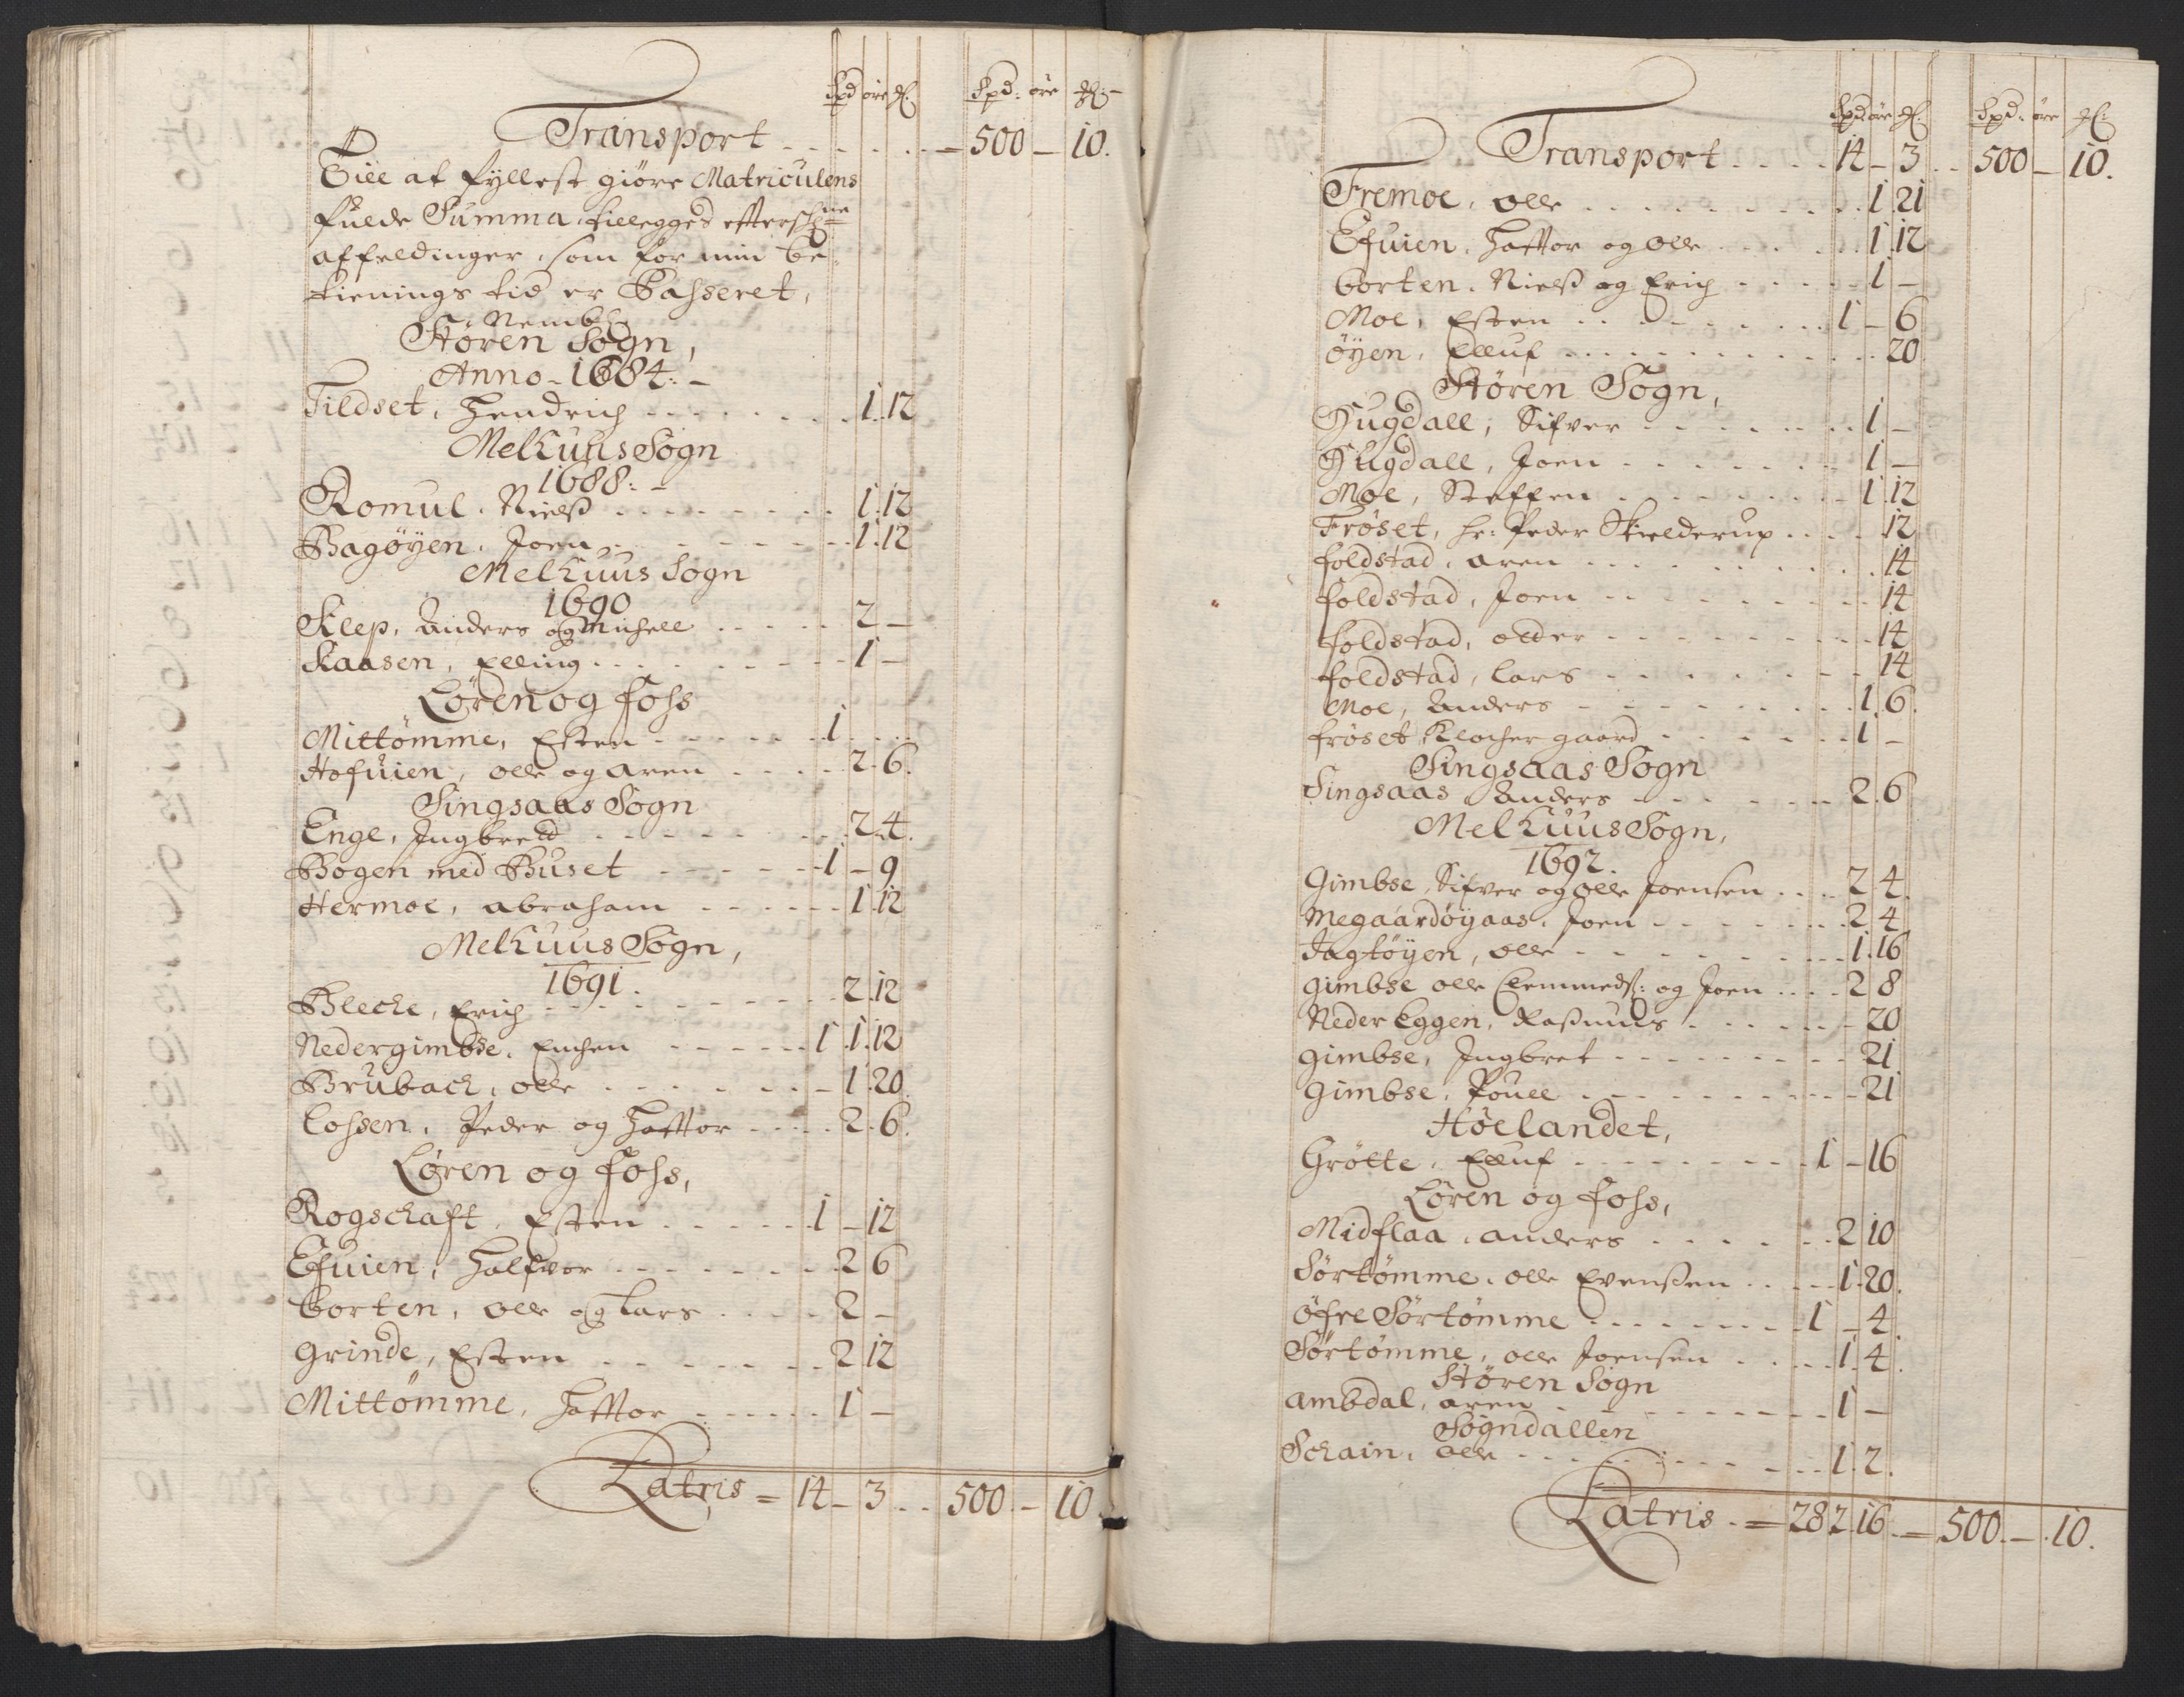 Spd øre
Spd: øre
Transport - - - - - - 500 - 10.
Till at fyllest giøre Matriculens
fulde Summa, tillegges efterschne
affeldinger, som for min be
tienings tid er Passeret,
Nembl.
Støren Sogn,
Anno - 1684: -
Tildset, Hendrich - - - - - 1. 12
Melhuus Sogn
1688: -
Romul, Nielß - - - - - 1. 12
Bagøyen, Joen - - - - - 1. 12
Melhuus Sogn
1690
Klep, Anders og Michell - - - - - 2 -
Kaasen, Elling - - - - - 1 -
Løren og Foss
Mittømme, Esten - - - - - 1 - - -
Hofuien, olle og aren - - - - - 2. 6.
Singsaas Sogn
Enge, Ingbreld - - - - - 2. 4.
Bogen med Buset - - - - - 1 - 9
Hermoe, abraham - - - - - 1. 12
Melhuus Sogn,
1691.
Blecke, Erich - - - - - 2. 12
Nedergimbse, Enchen - - - - - 1. 1. 12
Brubach, olle - - - - - 1. 20.
Lossen, Peder og Haftor - - - - - 2. 6.
Løren og Foss,
Rogschaft, Esten - - - - - 1 - 12
Efuien, Halfvor - - - - - 2 6
borten, olle og Lars - - - - - 2 -
Grinde, Esten - - - - - 2 12
Mittømme, Haftor - - - - - 1 -
Latris = 14 - 3 - - 500 - 10.
Spd øre
Spd: øre
Transport - - - - 14 - 3 - - 500 - 10.
Fremoe, olle - - - - - 1. 21
Efuien, Haftor og olle - - - - - 1. 12
borten, Nielß og Erich - - - - - 1 -
Moe, Esten - - - - - 1 - 6
øyen, Elluf - - - - - 20
Støren Sogn,
Hugdall, Sifver - - - - - 1 -
Hugdall, Joen - - - - - 1 -
Moe, Steffen - - - - - 1. 12
Frøset, hr: Peder Skielderup - - - - 12
foldstad, aren - - - - - 14
foldstad, Joen - - - - - 14
foldstad, older - - - - - 14
foldstad, Lars - - - - - 14
Moe, Anders - - - - - 1. 6.
frøset Klocher gaard - - - - - 1 -
Singsaas Sogn
Singsaas Anders - - - - - 2. 6
Melhuus Sogn,
1692.
Gimbse, Sifver og olle Joensen - - - - 2. 4.
Megaardøyaas, Joen - - - - - 2 4
Jagtøyen, olle - - - - - 1. 16
gimbse olle Clemmeds: og Joen - - - - 2 8
Neder Eggen, Raßmus - - - - - 20
gimbse, Ingbret - - - - - 21
gimbse, Pouel - - - - - 21
Høelandet,
Grøtte, Elluf - - - - - 1 - 16
Løren og Foss,
Midflaa, anders - - - - - 2 10
Sørtømme, olle Evensen - - - - - 1. 20.
øfre Sørtømme - - - - - 1 - 4.
Sørtømme, olle Joensen - - - - - 1. 4.
Støren Sogn
ambdal, aren - - - - - 1 -
Sogndallen
Schain, olle - - - - - 1. 2.
Latris - = 28 2. 16 - 500 - 10.